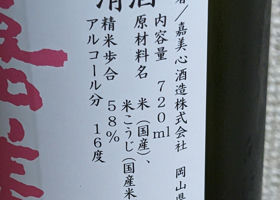 清酒
者/嘉美心酒造株式会社 岡山県
内容量 720ml
原材料名 米(国産)、
米こうじ(国産米
精米歩合 58%
アルコール分 16度